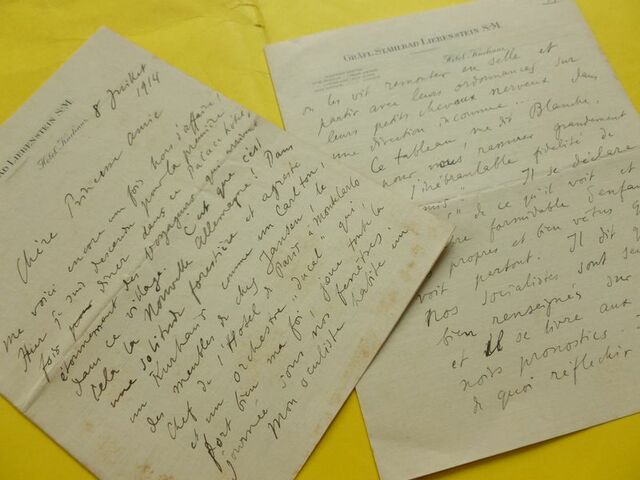 AD LIEBENSTEIN S/M
Hotel Kurhaus
8 Juillet
1914
Chère Princesse amie
me voici encore un fois hors d'affaire!
Hier je suis descendu pour la première
fois dîner dans ce Palace hôtel,
étonnement des voyageurs qui arrivent
dans ce village. C'est que c'est
cela la Nouvelle Allemagne! Dans
une solitude forestière et agreste
un Kurhaus comme un Carlton,
des meubles de chez Jansen, le
chef de l'Hotel de Paris à Monte Carlo
et un orchestre "ducal" qui,
fort bien ma foi! joue toute la
journée sous nos fenêtres.
Mon oculiste habite un
GRÄFL. STAHLBAD LIEBENSTEIN S/M.
Hotel Kurhaus
on les vit remonter en selle et
partir avec leurs ordonnances sur
leurs petits chevaux nerveux dans
une direction inconnue...
Ce tableau me dit Blanche,
nous rassure grandement
l'inébranlable fidélité de
Il se déclare
de ce qu'il voit et
formidable
propres et bien vêtus
voit partout. Il dit
nos socialistes sont
bien renseignés sur
et il se livre aux
noirs pronostics...
de quoi réfléchir